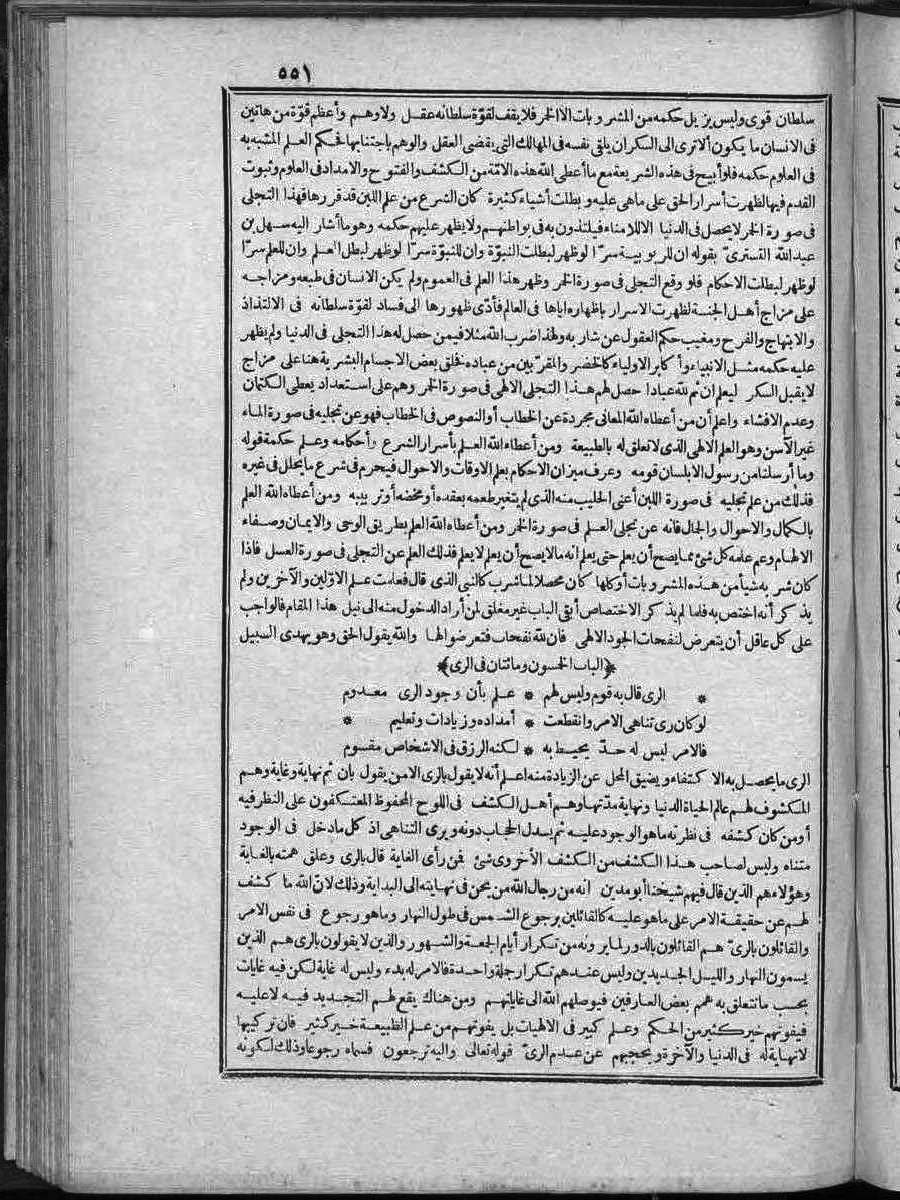 ٥٥١
سلطان قوى وليس يزيل حكمه من المشروبات الا الخمر فلا يقف لقوّة سلطانه عقل ولا وهم وأعظم قوّة من هاتين
فى الانسان ما يكون ألا ترى الى السكران يلقى نفسه فى المهالك التى يقضى العقل والوهم باجتنابها فحكم العلم المشبه به
فى العلوم حكمه فلو أبيح فى هذه الشريعة مع ما أعطى الله هذه الامّة من الكشف والفتوح والامداد فى العلوم وثبوت
القدم فيها لظهرت أسرار الحق على ما هى عليه وبطلت أشياء كثيرة كان الشرع من علم اللبن قد قررها فهذا التجلى
فى صورة الخمر لا يحصل فى الدنيا الا للامناء فيلتذون به فى بواطنهم ولا يظهر عليهم حكمه وهو ما أشار اليه سهل بن
عبد الله التسترىّ بقوله ان للربوبية سرّا لو ظهر لبطلت النبوّة وان للنبوّة سرّا لو ظهر لبطل العلم وان للعلم سرّا
لو ظهر لبطلت الاحكام فلو وقع التجلى فى صورة الخمر وظهر هذا العلم فى العموم ولم يكن الانسان فى طبعه ومزاجه
على مزاج أهل الجنة لظهرت الاسرار باظهاره اياها فى العالم فأدّى ظهورها الى فساد لقوّة سلطانه فى الالتذاذ
والابتهاج والفرح ومغيب حكم العقول عن شاربه ولهذا ضرب الله مثلا فيمن حصل له هذا التجلى فى الدنيا ولم يظهر
عليه حكمه مثل الانبياء وأكابر الاولياء كالخضر والمقرّبين من عباده فخلق بعض الاجسام البشرية هنا على مزاج
لا يقبل السكر ليعلم ان ثم لله عبادا حصل لهم هذا التجلى الالهى فى صورة الخمر وهم على استعداد يعطى الكتمان
وعدم الافشاء واعلم أن من أعطاه الله المعانى مجردة عن الخطاب أو النصوص فى الخطاب فهو عن تجليه فى صورة الماء
غير الآسن وهو العلم الالهى الذى لا تعلق له بالطبيعة ومن أعطاه الله العلم بأسرار الشرع وأحكامه وعلم حكمة قوله
وما أرسلنا من رسول الا بلسان قومه وعرف ميزان الاحكام بعلم الاوقات والاحوال فيحرم فى شرع ما يحلل فى غيره
فذلك من علم تجليه فى صورة اللبن أعنى الحليب منه الذى لم يتغير طعمه بعقده أو مخضه أو تربيبه ومن أعطاه الله العلم
بالكمال والاحوال والجال فانه عن تجلى العلم فى صورة الخمر ومن أعطاه الله العلم بطريق الوحى والايمان وصفاء
الالهام وعم علمه كل شئ مما يصح أن يعلم حتى يعلم انه ما لا يصح أن يعلم لا يعلم فذلك العلم عن التجلى فى صورة العسل فاذا
كان شربه شيأ من هذه المشروبات أو كلها كان محصلا لما شرب كالنبى الذى قال فعلمت علم الاوّلين والآخرين ولم
يذكر أنه اختص به فلما لم يذكر الاختصاص أبقى الباب غير مغلق لمن أراد الدخول منه الى نيل هذا المقام فالواجب
على كل عاقل أن يتعرض لنفحات الجود الالهى فان لله نفحات فتعرضوا لها والله يقول الحق وهو يهدى السبيل
﴿الباب الخمسون ومائتان فى الرى﴾
* الرى قال به قوم وليس لهم * علم بأن وجود الرى معدوم
لو كان رى تناهى الامر وانقطعت * أمداده وزيادات وتعليم *
فالامر ليس له حدّ يحيط به * لكنه الرزق فى الاشخاص مقسوم
الرى ما يحصل به الاكتفاء ويضيق المحل عن الزيادة منه اعلم أنه لا يقول بالرى الا من يقول بان ثم نهاية وغاية وهم
المكشوف لهم عالم الحياة الدنيا ونهاية مدّتها وهم أهل الكشف فى اللوح المحفوظ المعتكفون على النظر فيه
أو من كان كشفه فى نظرته ما هو الوجود عليه ثم يسدل الحجاب دونه ويرى التناهى اذ كل ما دخل فى الوجود
متناه وليس لصاحب هذا الكشف من الكشف الأخروى شئ فمن رأى الغاية قال بالرى وعلق همته بالغاية
وهؤلاء هم الذين قال فيهم شيخنا أبو مدين انه من رجال الله من يحن فى نهايته الى البداية وذلك لانّ الله ما كشف
لهم عن حقيقة الامر على ما هو عليه كالقائلين برجوع الشمس فى طول النهار وما هو رجوع فى نفس الامر
والقائلون بالرىّ هم القائلون بالدور لما يرونه من تكرار أيام الجمعة والشهور والذين لا يقولون بالرى هم الذين
يسمون النهار والليل الجديدين وليس عندهم تكرار جلة واحدة فالامر له بدء وليس له غاية لكن فيه غايات
بحسب ما تتعلق به همم بعض العارفين فيوصلهم الله الى غاياتهم ومن هناك يقع لهم التجديد فيه لا عليه
فيفوتهم خير كثير من الحكم وعلم كبير فى الالهيات بل يفوتهم من علم الطبيعة خير كثير فان تركيبها
لا نهاية له فى الدنيا والآخرة ويحجبهم عن عدم الرىّ قوله تعالى واليه ترجعون فسماه رجوعا وذلك لكونه